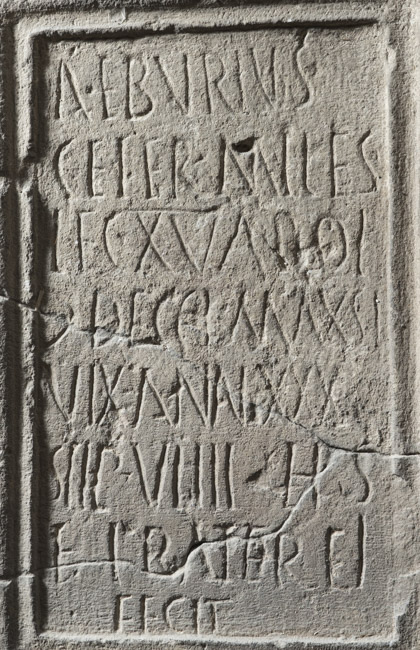 A·EBVRIVS
CELER·MILES
LEG XV
MAXSI
VIX·ANN·XXX
STIP·VIIII·H·S
E·FRATER·EI
FECIT